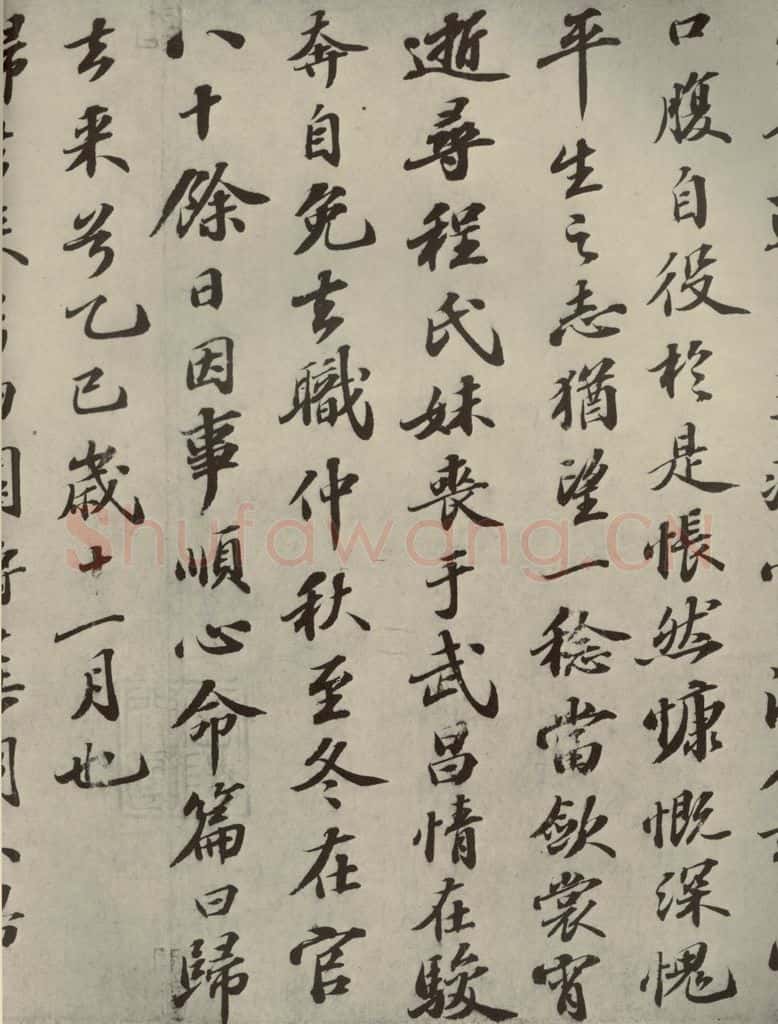 口腹自役於是悵然慷慨深愧
平生之志猶望一稔當斂裳宵
逝尋程氏妹喪于武昌情在駿
奔自免去職仲秋至冬在官
八十餘日因事順心命篇曰歸
去来兮乙巳歲十一月也
Shufawang.CN